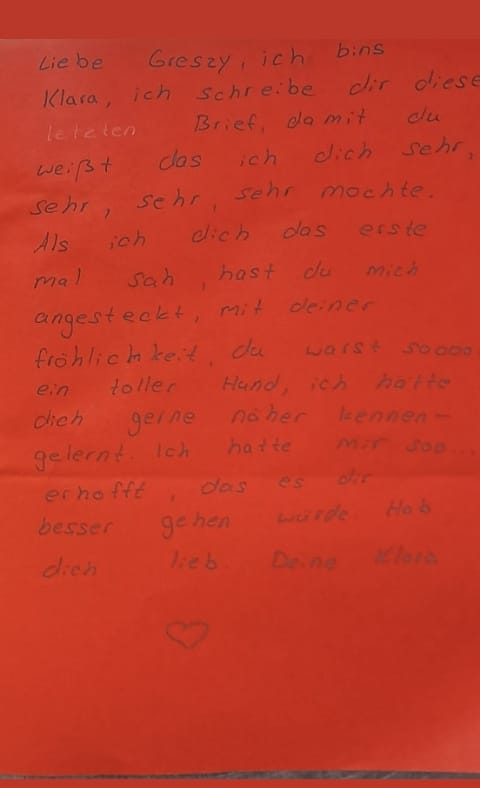 Liebe Greszy, ich bins
Klara, ich schreibe dir diese
letzten Brief, damit du
weißt das ich dich sehr,
sehr, sehr, sehr mochte.
Als ich dich das erste
mal sah, hast du mich
angesteckt, mit deiner
fröhlichkeit, du warst soooo
ein toller Hund, ich hätte
dich gerne näher kennen-
gelernt. Ich hatte mir soo...
erhofft, das es dir
besser gehen würde. Hab
dich lieb. Deine Klara